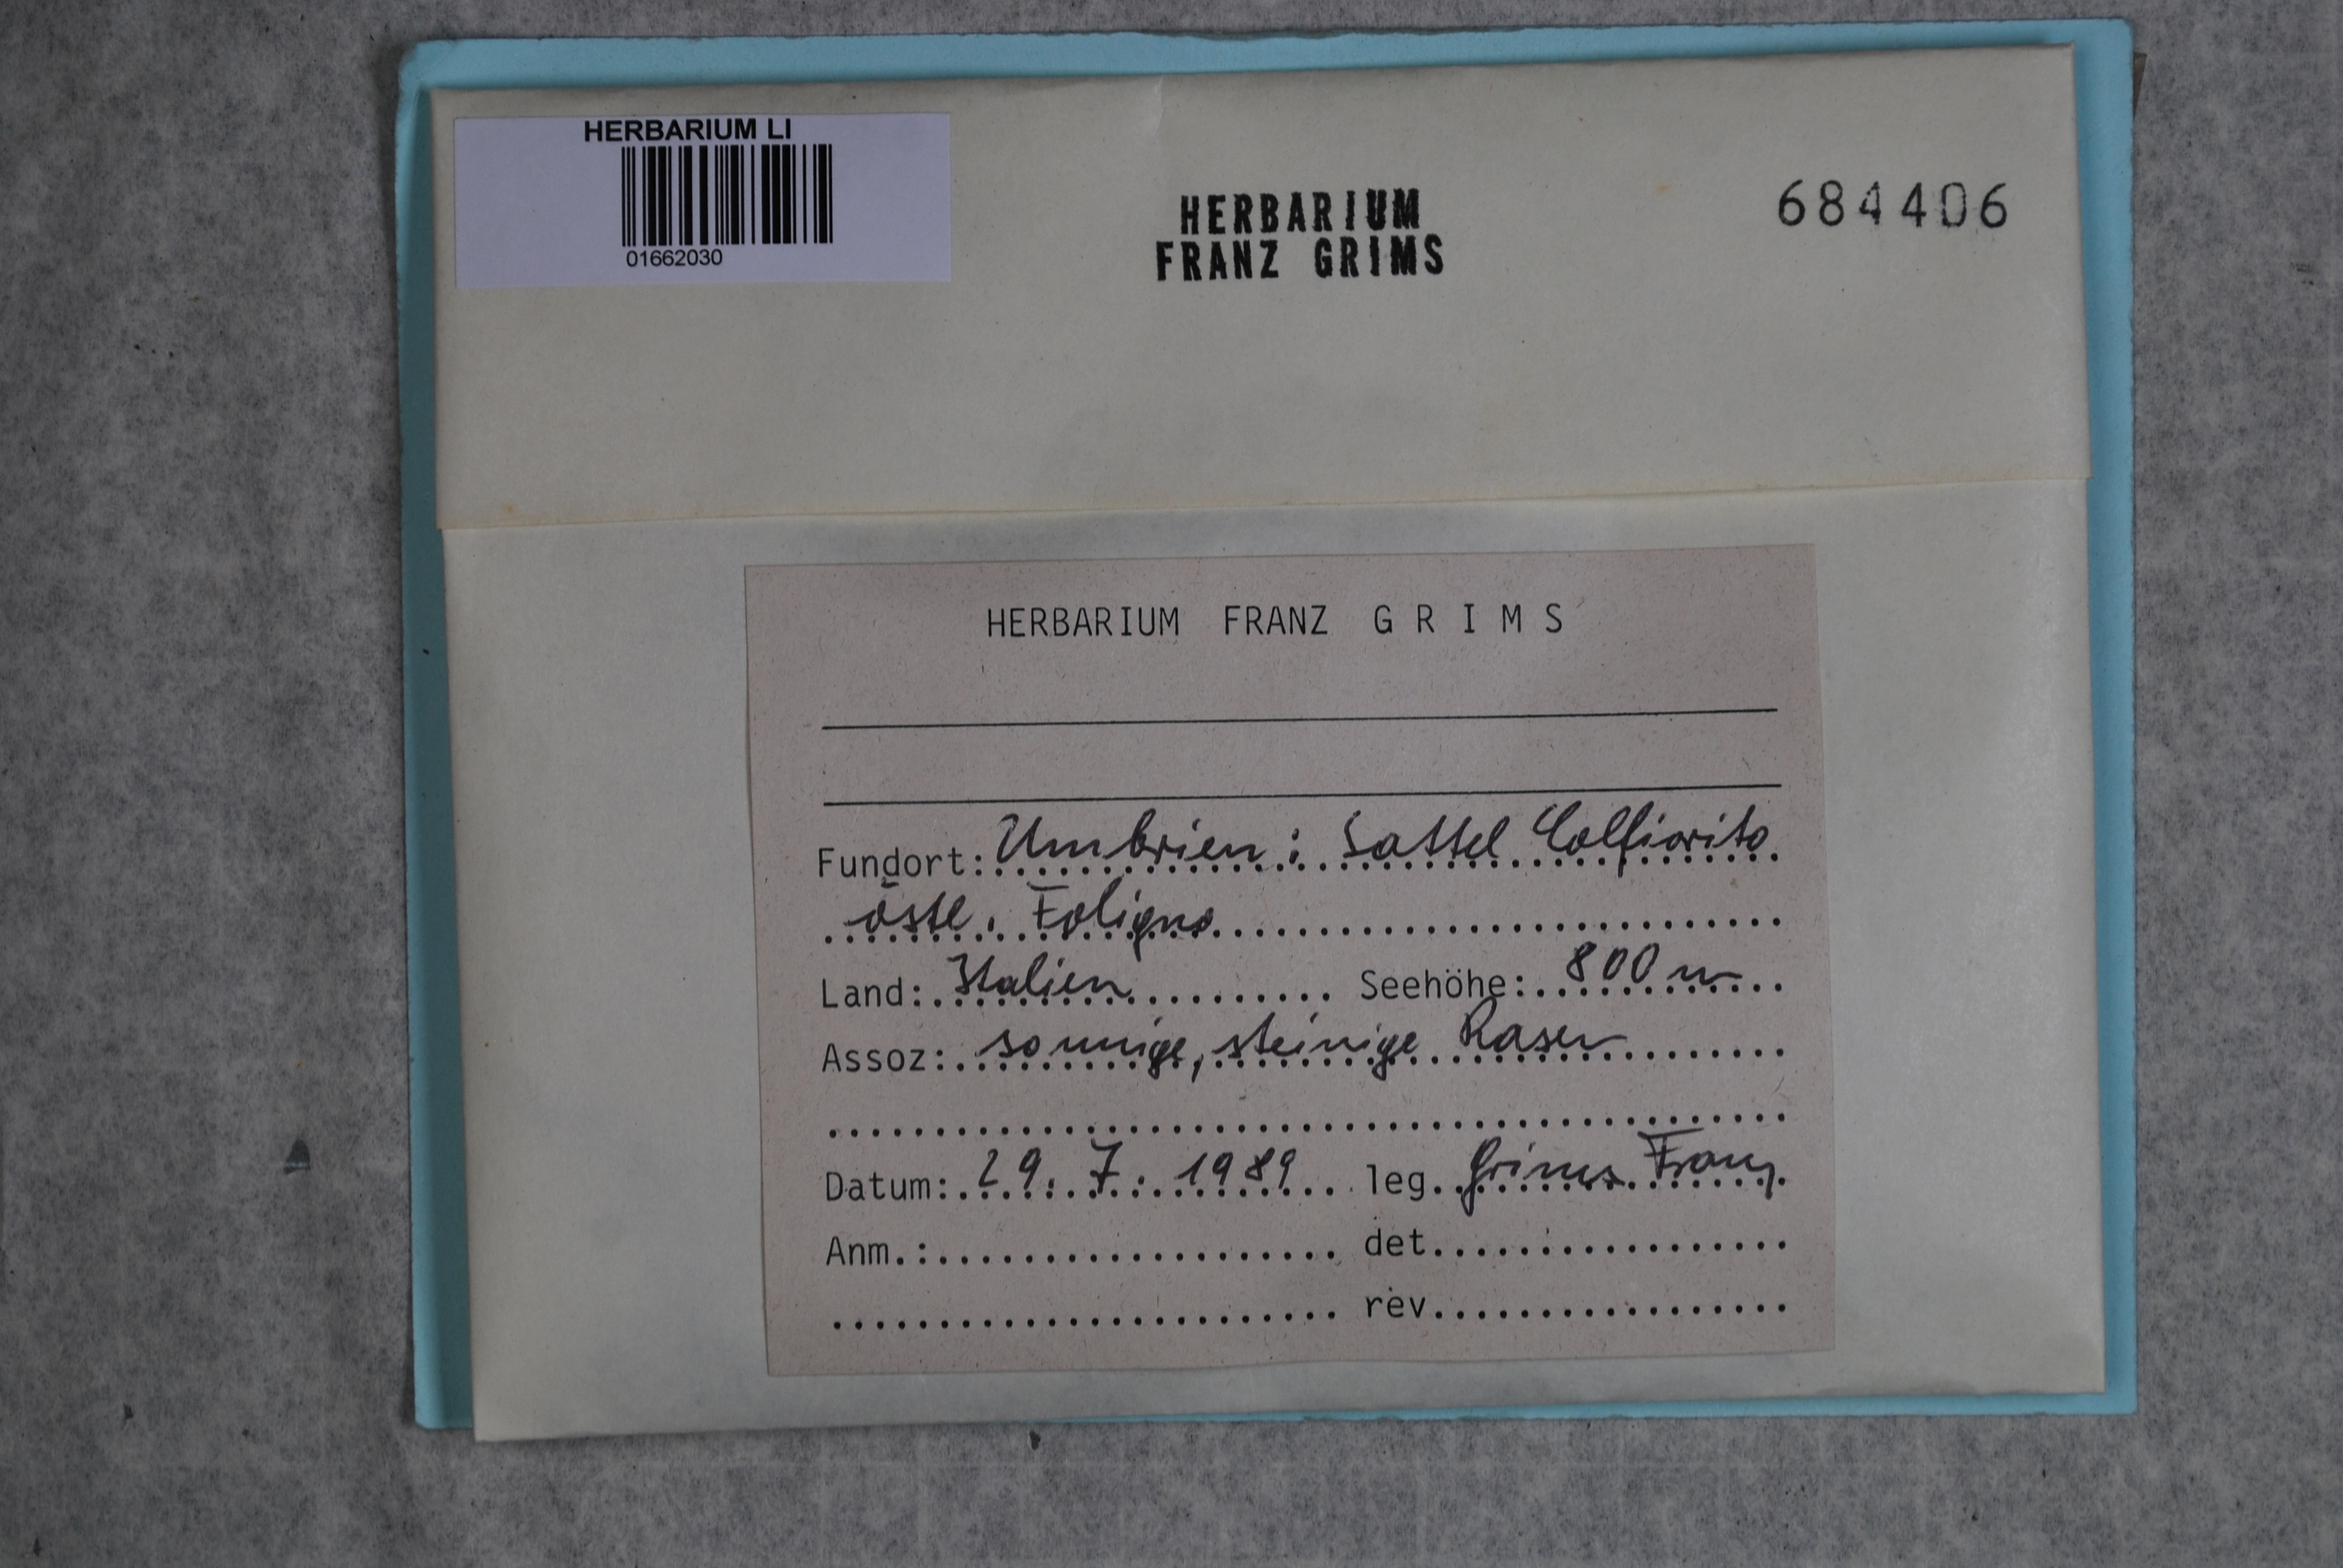 HERBARIUM LI
01662030
HERBARIUM
FRANZ GRIMS
684406
HERBARIUM FRANZ G R I M S
Fundort: Umbrien: Sattel Colfiorito
östl. Foligno
Land: Italien Seehöhe: 800 m
Assoz: sonnige, steinige Rasen
Datum: 29. 7. 1989 leg. Grims Franz
Anm.: det.
rev.